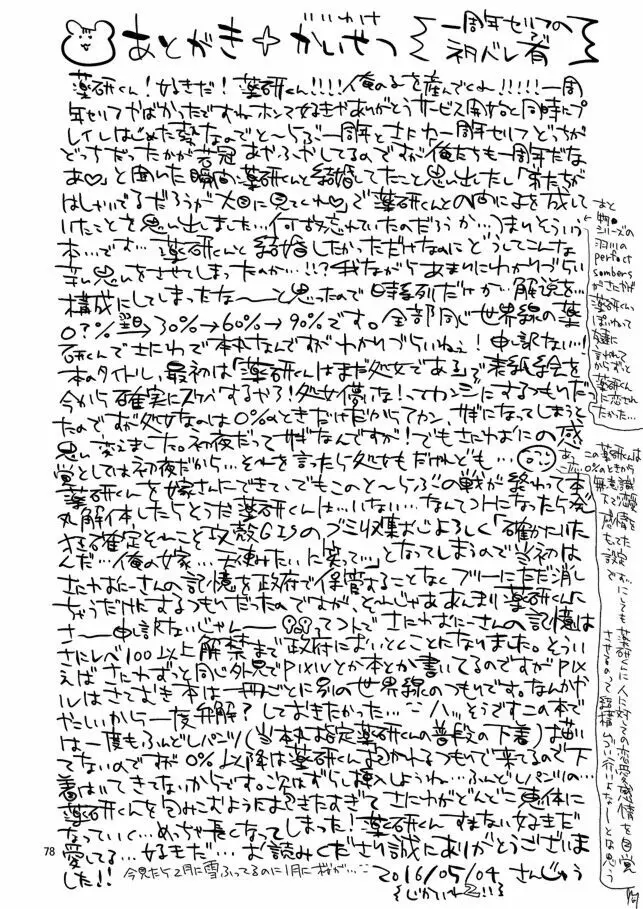 あとがき+かいせつ
一周年セリフの
ネタバレ有
薬研くん!好きだ!薬研くん!!!!人俺の子を産んでくれ!!!!!一周
年セリフやばかったですねホンマ好きやありがとうサービス開始と同時にプ
レイしはじめた
なので と~らぶ一周年とさにわ一周年セリフどっちが
どっちだったか若干あやふやしてるのですが「俺たちも一周年だな
あ♡」と聞いた瞬間薬研くんと結婚してたこと思い出したし「新たが
はしゃいでるだろうが大目に見てくれ♡」で薬研くんとの間に
いたことを思い出しました…(何故忘れていたのだろうか…)つまりそういう
本…です…薬研くんと結婚したかっただけなのにどうしてこんな
辛い思いをさせてしまったのか…!!?我ながらあまりにわかりづらい
構成にしてしまったな~~と思ったので時系列だけか…解説を…
0?%→30%→60%→90%です。全部同じ世界線の薬
研くんでさにわで本丸なんですがわかりづらいねぇ!申し訳ない!
本のタイトル、最初は「薬研くんはまだ処女である」で表紙絵を
今から確実にスケベするやろ!処女儚いな!ってカンジにするつもりだっ
たのですが処女なのは0%のときだけだからアカン サギになってしまうと
思い変えました。初夜だってサギなんですが!でもさにわおにの感
覚としては初夜だから…それを言ったら処女もだけれども…
薬研くんを嫁さんにできていてもこのと~らぶの戦が終わって本
丸解体したらとうに薬研くんは…いない…なんてコトになったら発
する確定とれこと攻殻GISのゴミ収集おじよろしく「確かにいた
んだ…俺の嫁…天使みたいに笑って…」となってしまうので当初は
さにわおにーさんの記憶を政府で保管することなくフツーにただ消し
ちゃうだけにするつもりだったのですが、それじゃああんまり薬研くんに
さーー申し訳ないじゃんーーってコトでさにわおにーさんの記憶は
さにレベ100以上解禁まで政府においとくことになりました。そうい
えばさにわずっと同じ外見でpixivとか本とか書いてるのですがpix
ルはさておき本は一冊ごとに別の世界線のつもりです。なんかや
やこしいから一度弁解?しておきたかった…ハッそうですこの本で
は一度もふんどしパンツ(当本丸指定薬研くんの普段の下着)描い
てないのですが0%以降は薬研くん抱かれるつもりで来てるので下
着はいてきてないからです。次はずらし挿入しようね…ふんどしパンツの…
薬研くんを包みこむように抱きたすぎてさにわがどんどこ恵体に
なっていく…めっちゃ長くなってしまった!薬研くんすまない好きだ
愛してる…好きだ…お読みくださり誠にありがとうございま
した!!
今見たら2月に雪ふってるのに1月に桜が…
2016/05/04 さんじゅう
あと
物●
シリーズの
羽川の
perfect
sombers
がさにわが
薬研くんっ
ぽいわって
今更に
言われて
からずっと
薬研くん
に恋され
たかった…
あ、この薬研くんは
0%のときから
無意識
な恋愛
感情を
もってた
設定
です。にしても薬研くんに人に対しての恋愛感情を自覚
させるのって
78